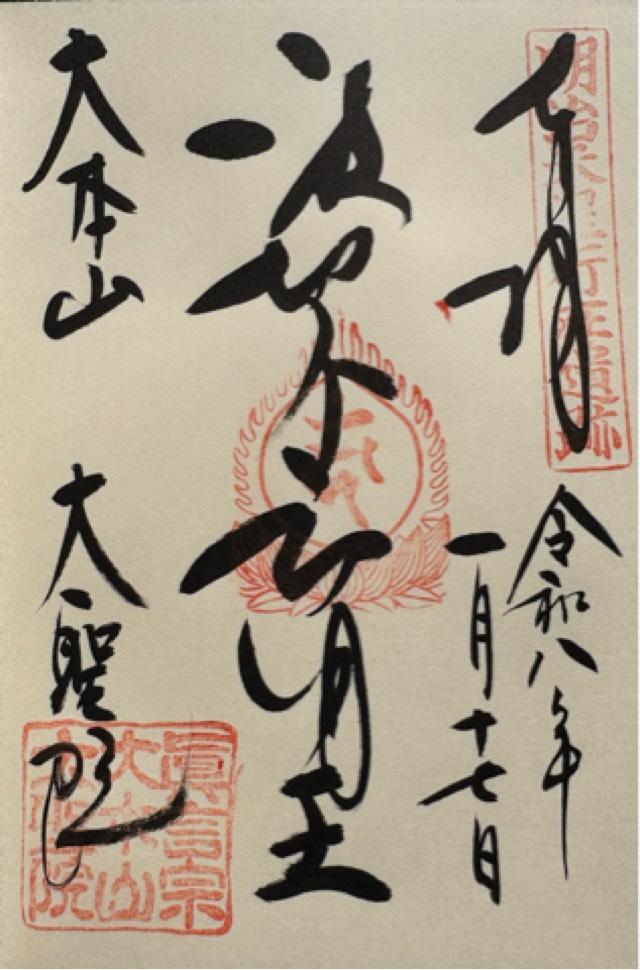 奉拝
令和八年
一月十七日
波切不動明王
大本山
大聖院
眞言宗
大本山
大聖院